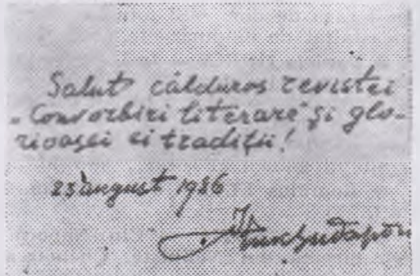 Salut călduros revistei
„Convorbiri literare" și glo-
rioasei ei tradiții!
23 august 1986